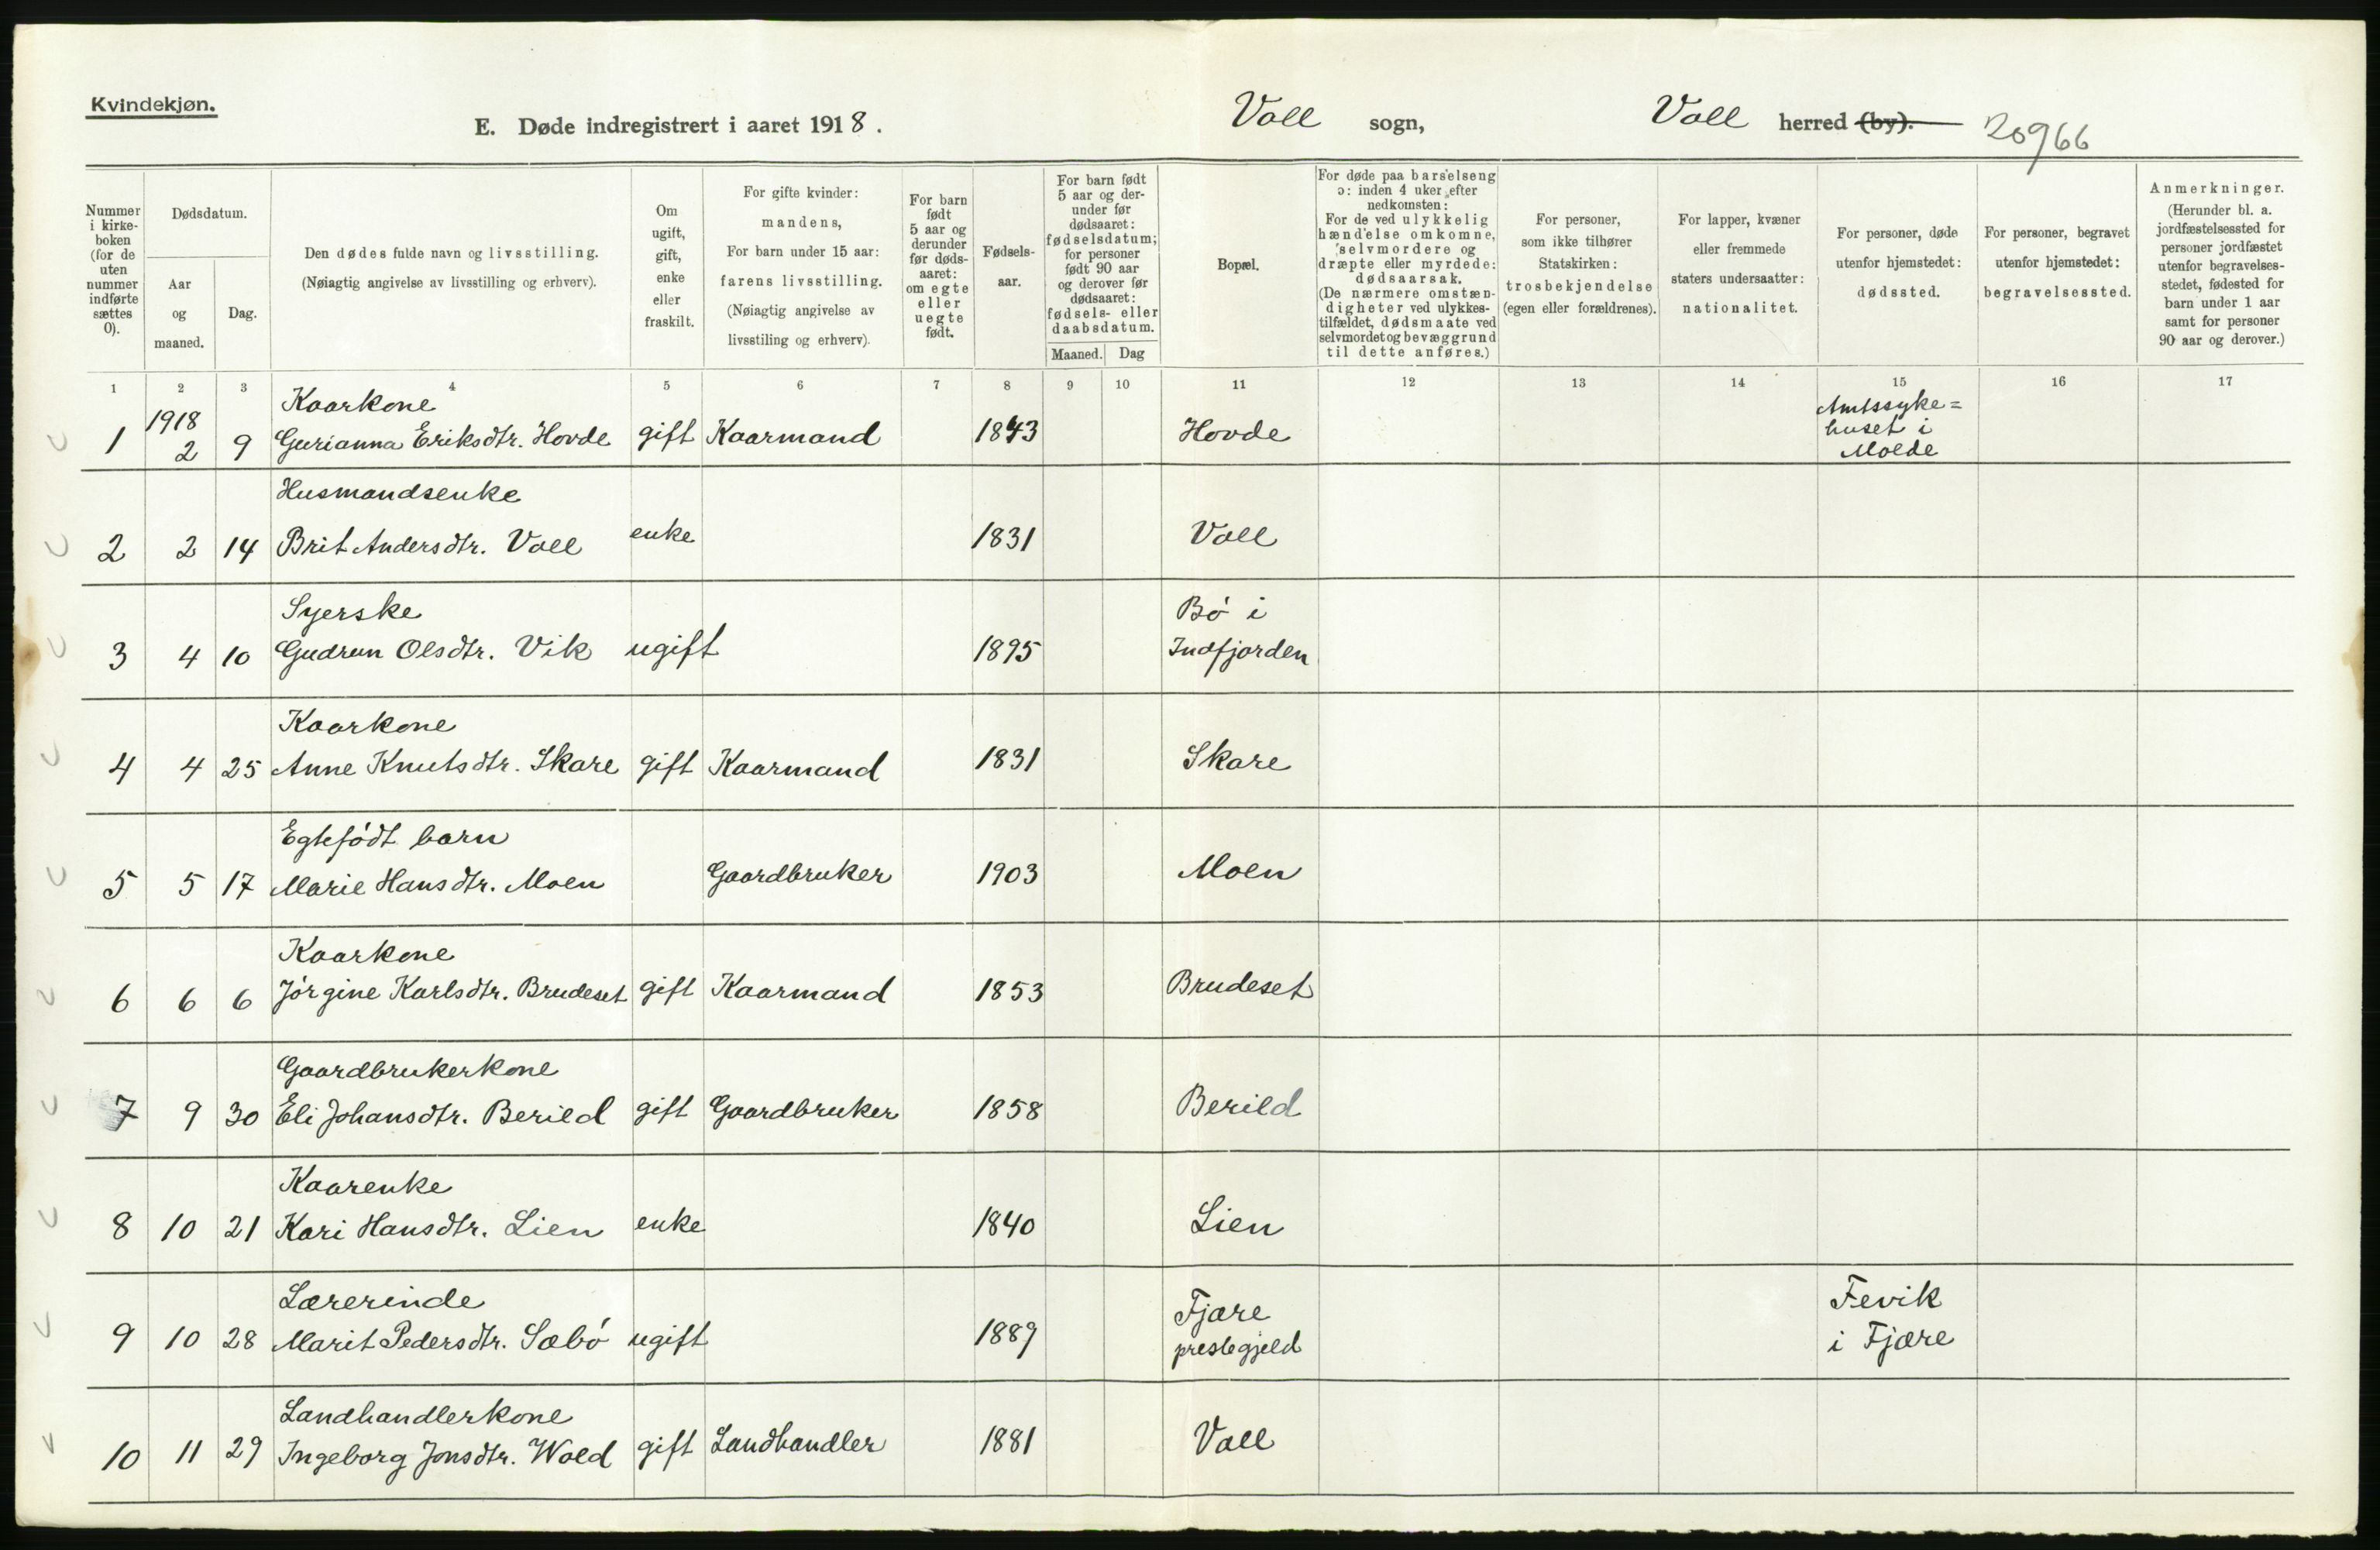 Kvindekjøn.
E. Døde indregistrert i aaret 1918.
Voll sogn,
Voll herred (by).
20966
Nummer i kirke-boken (for de uten nummer indførte sættes 0).
Dødsdatum.
Aar og maaned.
Dag.
Den dødes fulde navn og livsstilling.
(Nøiagtig angivelse av livsstilling og erhverv).
Om ugift, gift, enke eller fraskilt.
For gifte kvinder: mandens,
For barn under 15 aar: farens livsstilling.
(Nøiagtig angivelse av livsstiling og erhverv).
For barn født 5 aar og derunder før døds-aaret: om egte eller uegte født.
Fødsels-aar.
For barn født 5 aar og der-under før dødsaaret: fødselsdatum; for personer født 90 aar og derover før dødsaaret: fødsels- eller daabsdatum.
Maaned. Dag
Bopæl.
For døde paa barselseng ɔ: inden 4 uker efter nedkomsten:
For de ved ulykkelig hændelse omkomne, selvmordere og dræpte eller myrdede: dødsaarsak.
(De nærmere omstæn-digheter ved ulykkes-tilfældet, dødsmaate ved selvmordet og bevæggrund til dette anføres.)
For personer, som ikke tilhører Statskirken: trosbekjendelse (egen eller forældrenes).
For lapper, kvæner eller fremmede staters undersaatter: nationalitet.
For personer, døde utenfor hjemstedet: dødssted.
For personer, begravet utenfor hjemstedet: begravelsessted.
Anmerkninger.
(Herunder bl. a. jordfæstelsessted for personer jordfæstet utenfor begravelses-stedet, fødested for barn under 1 aar samt for personer 90 aar og derover.)
1 2 3 4 5 6 7 8 9 10 11 12 13 14 15 16 17
1918 Kaarkone
1 2 9 Gurianna Eriksdtr. Hovde gift Kaarmand 1843 Hovde Amtssyke=
huset i
Molde
Husmandsenke
2 2 14 Brit Andersdtr. Voll enke 1831 Voll
Syerske Bö i
3 4 10 Gudrun Olsdtr. Vik ugift 1895 Indfjorden
Kaarkone
4 4 25 Anne Knutsdtr. Skare gift Kaarmand 1831 Skare
Egtefödt barn
5 5 17 Marie Hansdtr. Moen Gaardbruker 1903 Moen
Kaarkone
6 6 6 Jörgine Karlsdtr. Brudeset gift Kaarmand 1853 Brudeset
Gaardbrukerkone
7 9 30 Eli Johansdtr. Berild gift Gaardbruker 1858 Berild
Kaarenke
8 10 21 Kari Hansdtr. Lien enke 1840 Lien
Lærerinde Fjære Fevik
9 10 28 Marit Pedersdtr. Sæbö ugift 1889 prestegjeld i Fjære
Landhandlerkone
10 11 29 Ingeborg Jonsdtr. Wold gift Landhandler 1881 Voll